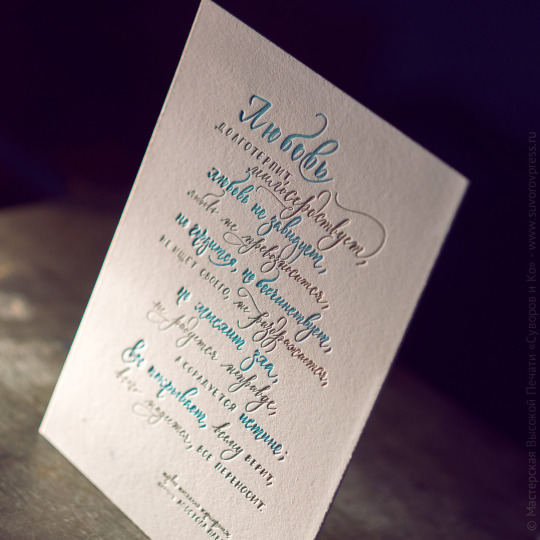 Любовь
ДОЛГОТЕРПИТ,
милосердствует,
любовь не завидует,
любовь не превозносится,
не гордится, не бесчинствует,
НЕ ИЩЕТ СВОЕГО, не раздражается,
не мыслит зла,
не радуется неправде,
А СОРАДУЕТСЯ истине;
Все покрывает, всему ВЕРИТ,
всего надеется, ВСЕ ПЕРЕНОСИТ.
© Мастерская Высокой Печати «Суворов и Ко» - www.suvorovpress.ru